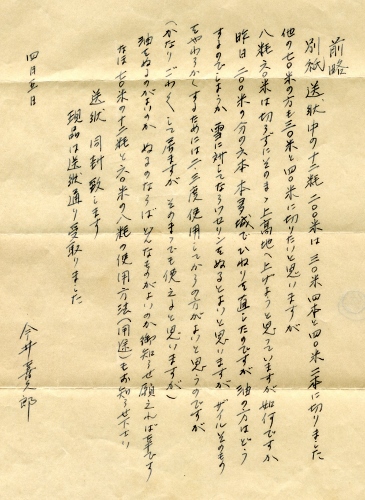 前略
別紙 送状中の十二粍 二〇〇米は 三〇米 四本と四〇米 二本に切りました
他の七〇米の方も三〇米と四〇米に切りたいと思いますが
八粍 六〇米は切らずにそのまゝ上高地へ上げようと思っていますが如何ですか
昨日 二〇〇米の分の六本 本 城でひねりを直したのですが 油の方はどう
するのでしようか 雪に対してならワセリンをぬるとよいと思いますが ザイルそのもの
をやわらかくするためには 二、三度使用してからの方がよいと思うのですが
(かなりごわごわして居ますが そのまゝでも使えると思いますが)
油をぬるのがよいのか ぬるのならば どんなものがよいのか御知らせ願えれば幸です
なほ 七〇米の十二粍と六〇米の八粍の使用方法(用途)もお知らせ下さい
送状 同封致します
現品は送状通り受取りました
四月五日
今井 喜 郎